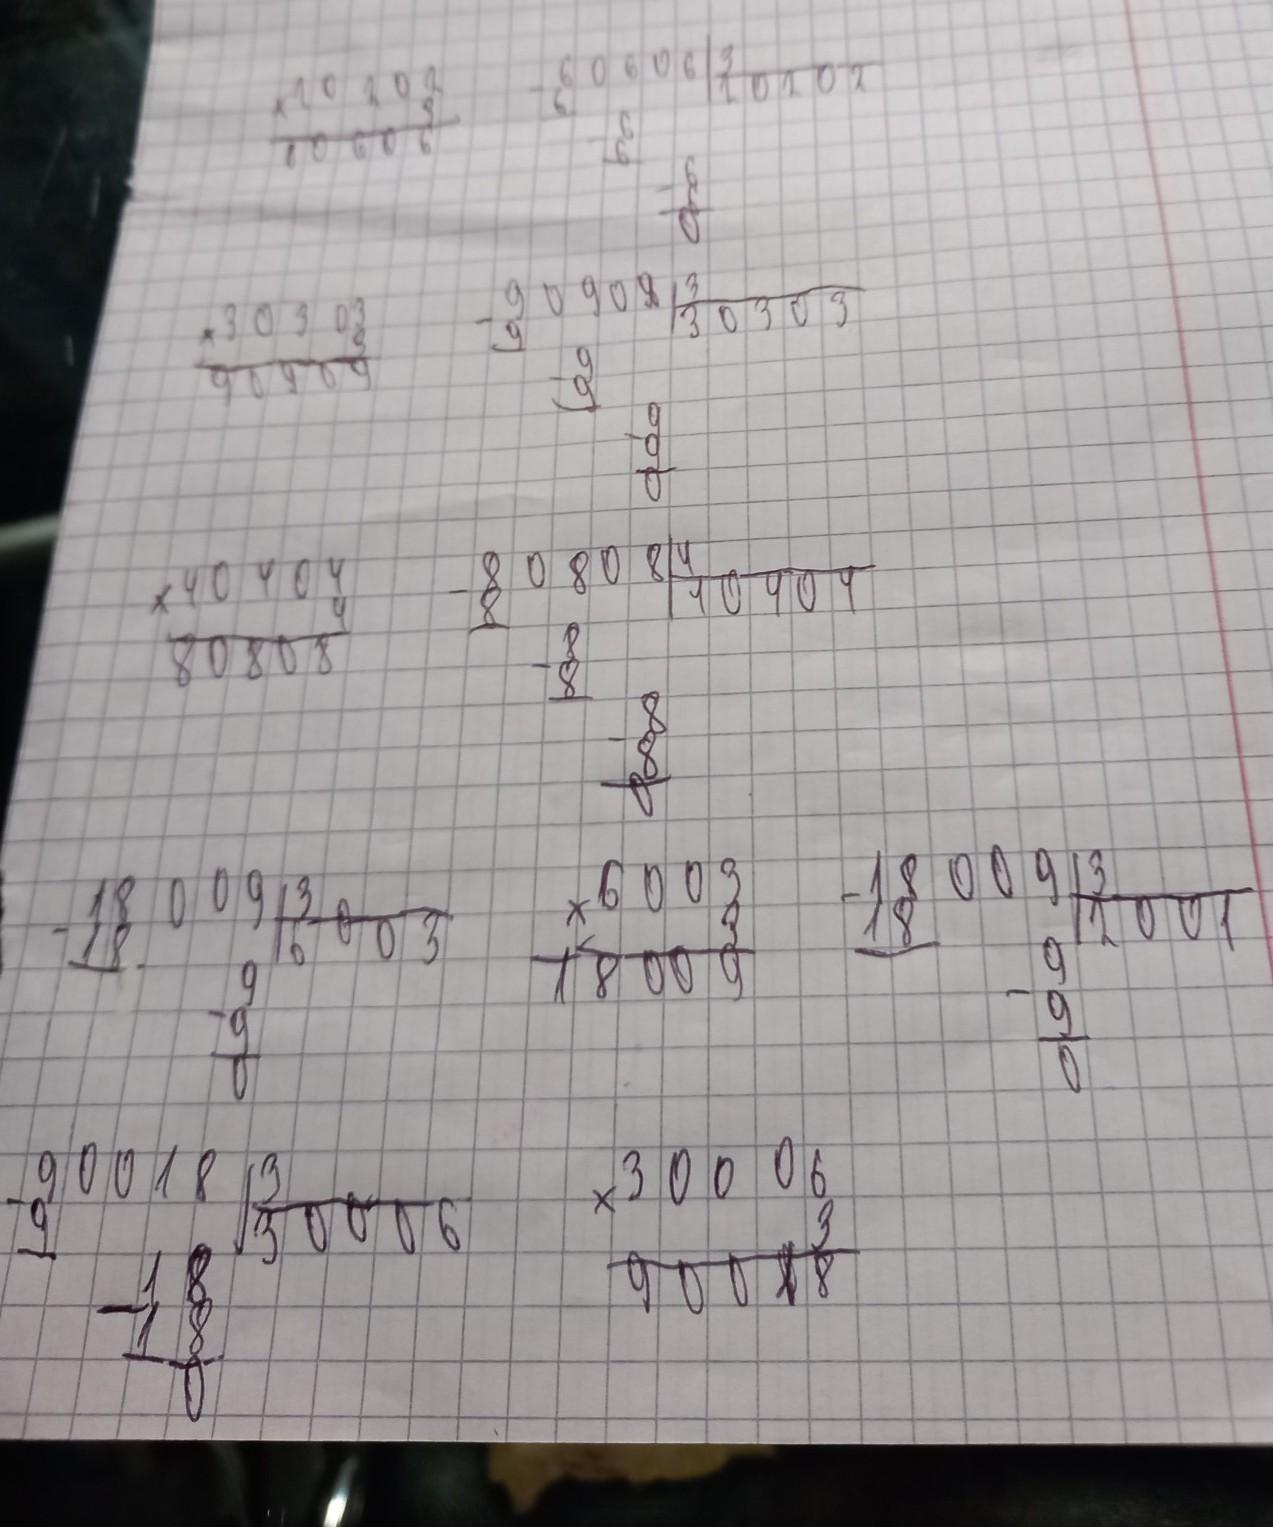 ×20202 -60606|3
3 6 20202
20606 6
-6
6
0
×30303 -90909|3
3 9 30303
90909 9
-9
9
-9
0
×40404 -80808|4
4 8 40404
80808 8
-8
8
-8
0
-18009|3 ×6003 -18009|3
18 6003 3 18 2001
9 18009 9
-9 -9
0 0
-90018|3 ×30006
9 30006 3
18 90018
-18
0